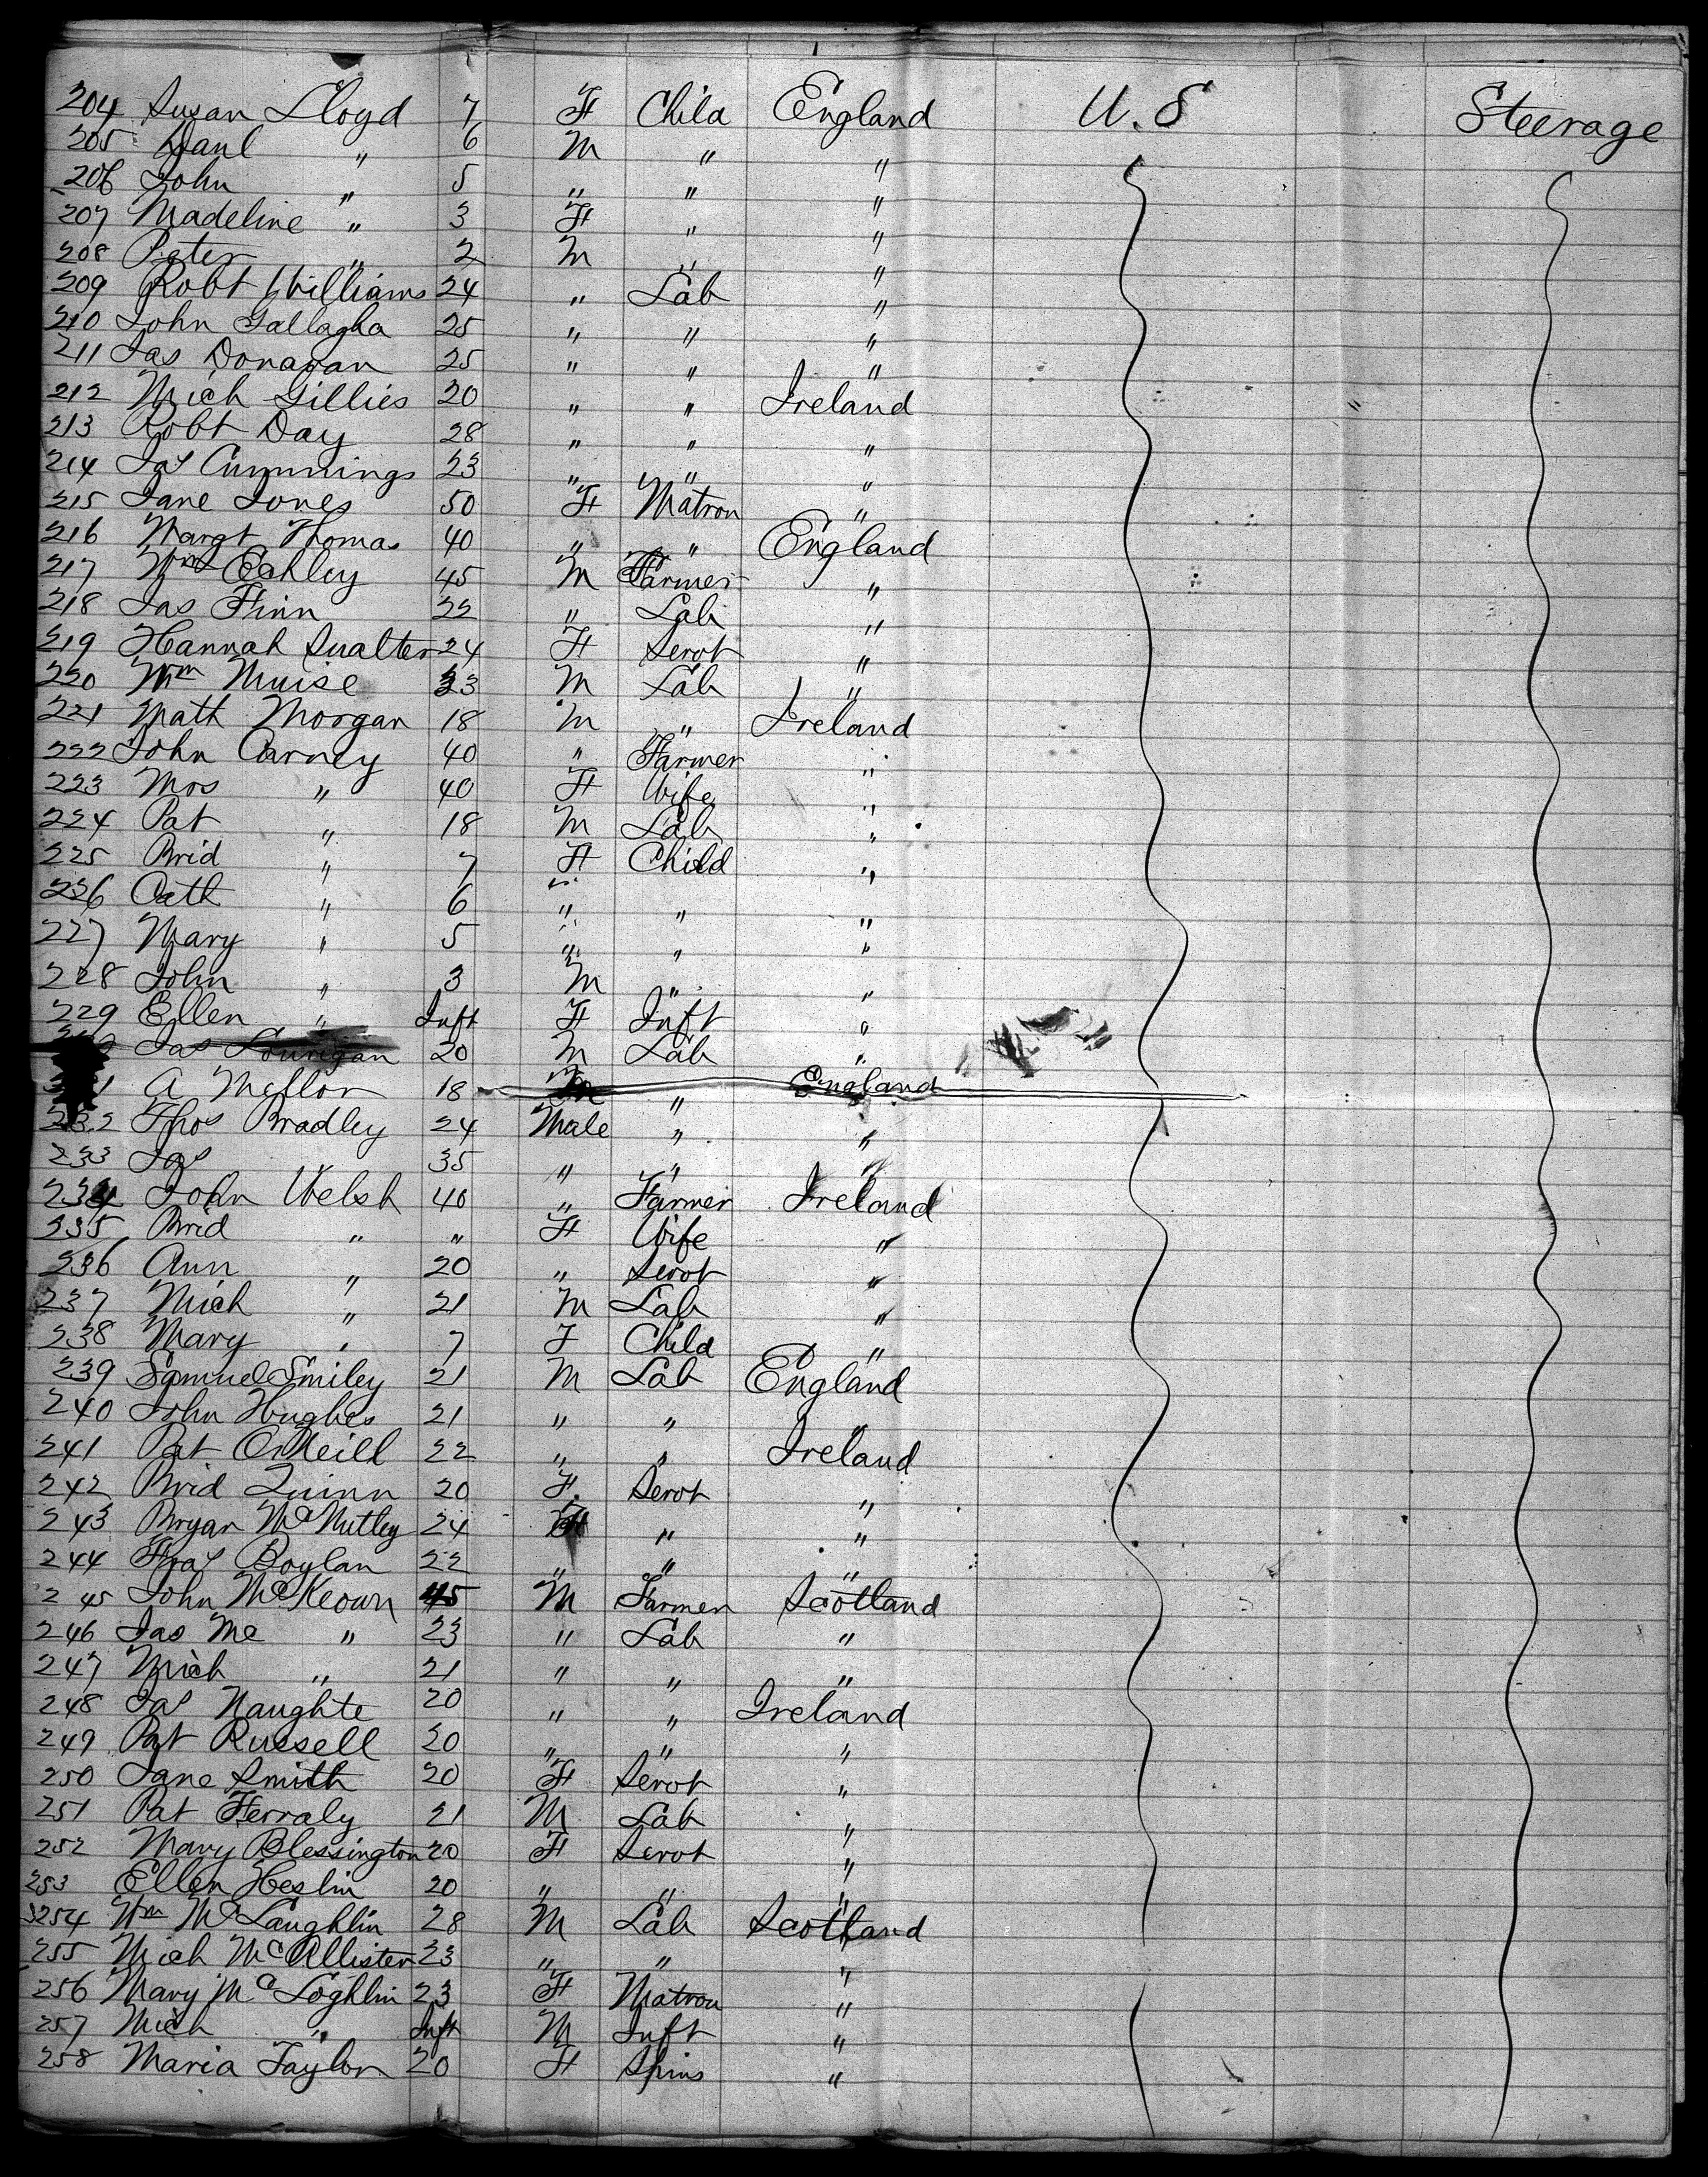 204 Susan Lloyd 7 F Child England U.S Steerage
205 Danl " 6 M " "
206 John " 5 " " "
207 Madeline " 3 F " "
208 Peter " 2 M " "
209 Robt Williams 24 " Lab "
210 John Gallagha 25 " " "
211 Jas Donavan 25 " " "
212 Mich Gillies 20 " " Ireland
213 Robt Day 28 " " "
214 Jas Cummings 23 " " "
215 Jane Jones 50 F Matron "
216 Margt Thomas 40 " " England
217 Wm 45 M Farmer "
218 Jas Finn 22 " Lab "
219 Hannah 24 F Servt "
220 Wm Muise 23 M Lab "
221 Math Morgan 18 M " Ireland
222 John Carney 40 " Farmer "
223 Mrs " 40 F Wife "
224 Pat " 18 M Lab "
225 Brid " 7 F Child "
226 Cath " 6 " " "
227 Mary " 5 " " "
228 John " 3 M " "
229 Ellen " Inft F Inft "
Jas 20 M Lab "
A Mellor 18 M " England
232 Thos Bradley 24 Male " "
233 Jas 35 " " "
234 John Welsh 40 " Farmer Ireland
235 Brid " " F Wife "
236 Ann " 20 " Servt "
237 Mich " 21 M Lab "
238 Mary " 7 F Child "
239 Samuel Smiley 21 M Lab England
240 John Hughes 21 " " "
241 Pat O'Neill 22 " " Ireland
242 Brid Quinn 20 F Servt "
243 Bryan McNutley 24 " "
244 Fras Boylan 22 " " "
245 John McKeown 45 M Farmer Scotland
246 Jas Mc " 23 " Lab "
247 Mich " 21 " " "
248 Jas Naughte 20 " " Ireland
249 Pat Russell 20 " " "
250 Jane Smith 20 F Servt "
251 Pat Ferraly 21 M Lab "
252 Mary Blessington 20 F Servt "
253 Ellen Heslin 20 " " "
254 Wm McLaughlin 28 M Lab Scotland
255 Mich McAllister 23 " " "
256 Mary McLoghlin 23 F Matron "
257 Mich " Inft M Inft "
258 Maria Taylor 20 F Spins "